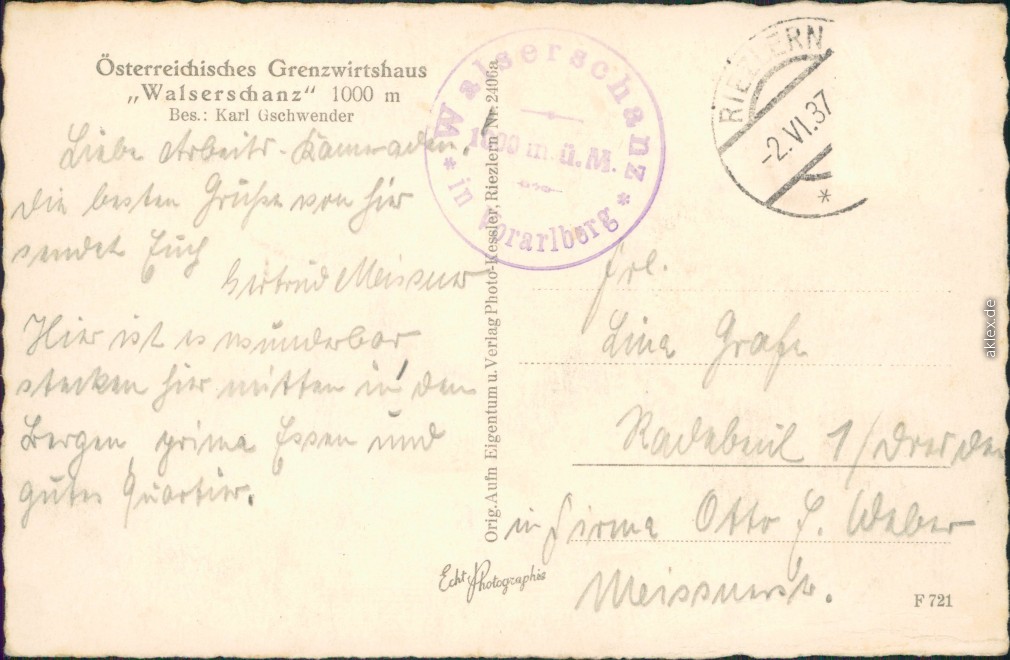 Österreichisches Grenzwirtshaus
„Walserschanz" 1000 m
Bes.: Karl Gschwender
Liebe Arbeits-Kameraden.
Die besten Grüße von hier
sendet Euch
Gertrud Meissner
Hier ist es wunderbar
stecken hier mitten in den
Bergen, prima Essen und
gutes Quartier.
Walserschanz
1000 m.ü.M.
* in Vorarlberg *
Orig. Aufn Eigentum u. Verlag Photo-Kessler, Riezlern Nr. 2406a
Echt Photographie
RIEZLERN
-2.VI.37
*
Frl.
Lina Grafe
Radebeul 1/Dresden
in Firma Otto E. Weber
Meissnerstr.
F 721
aklex.de